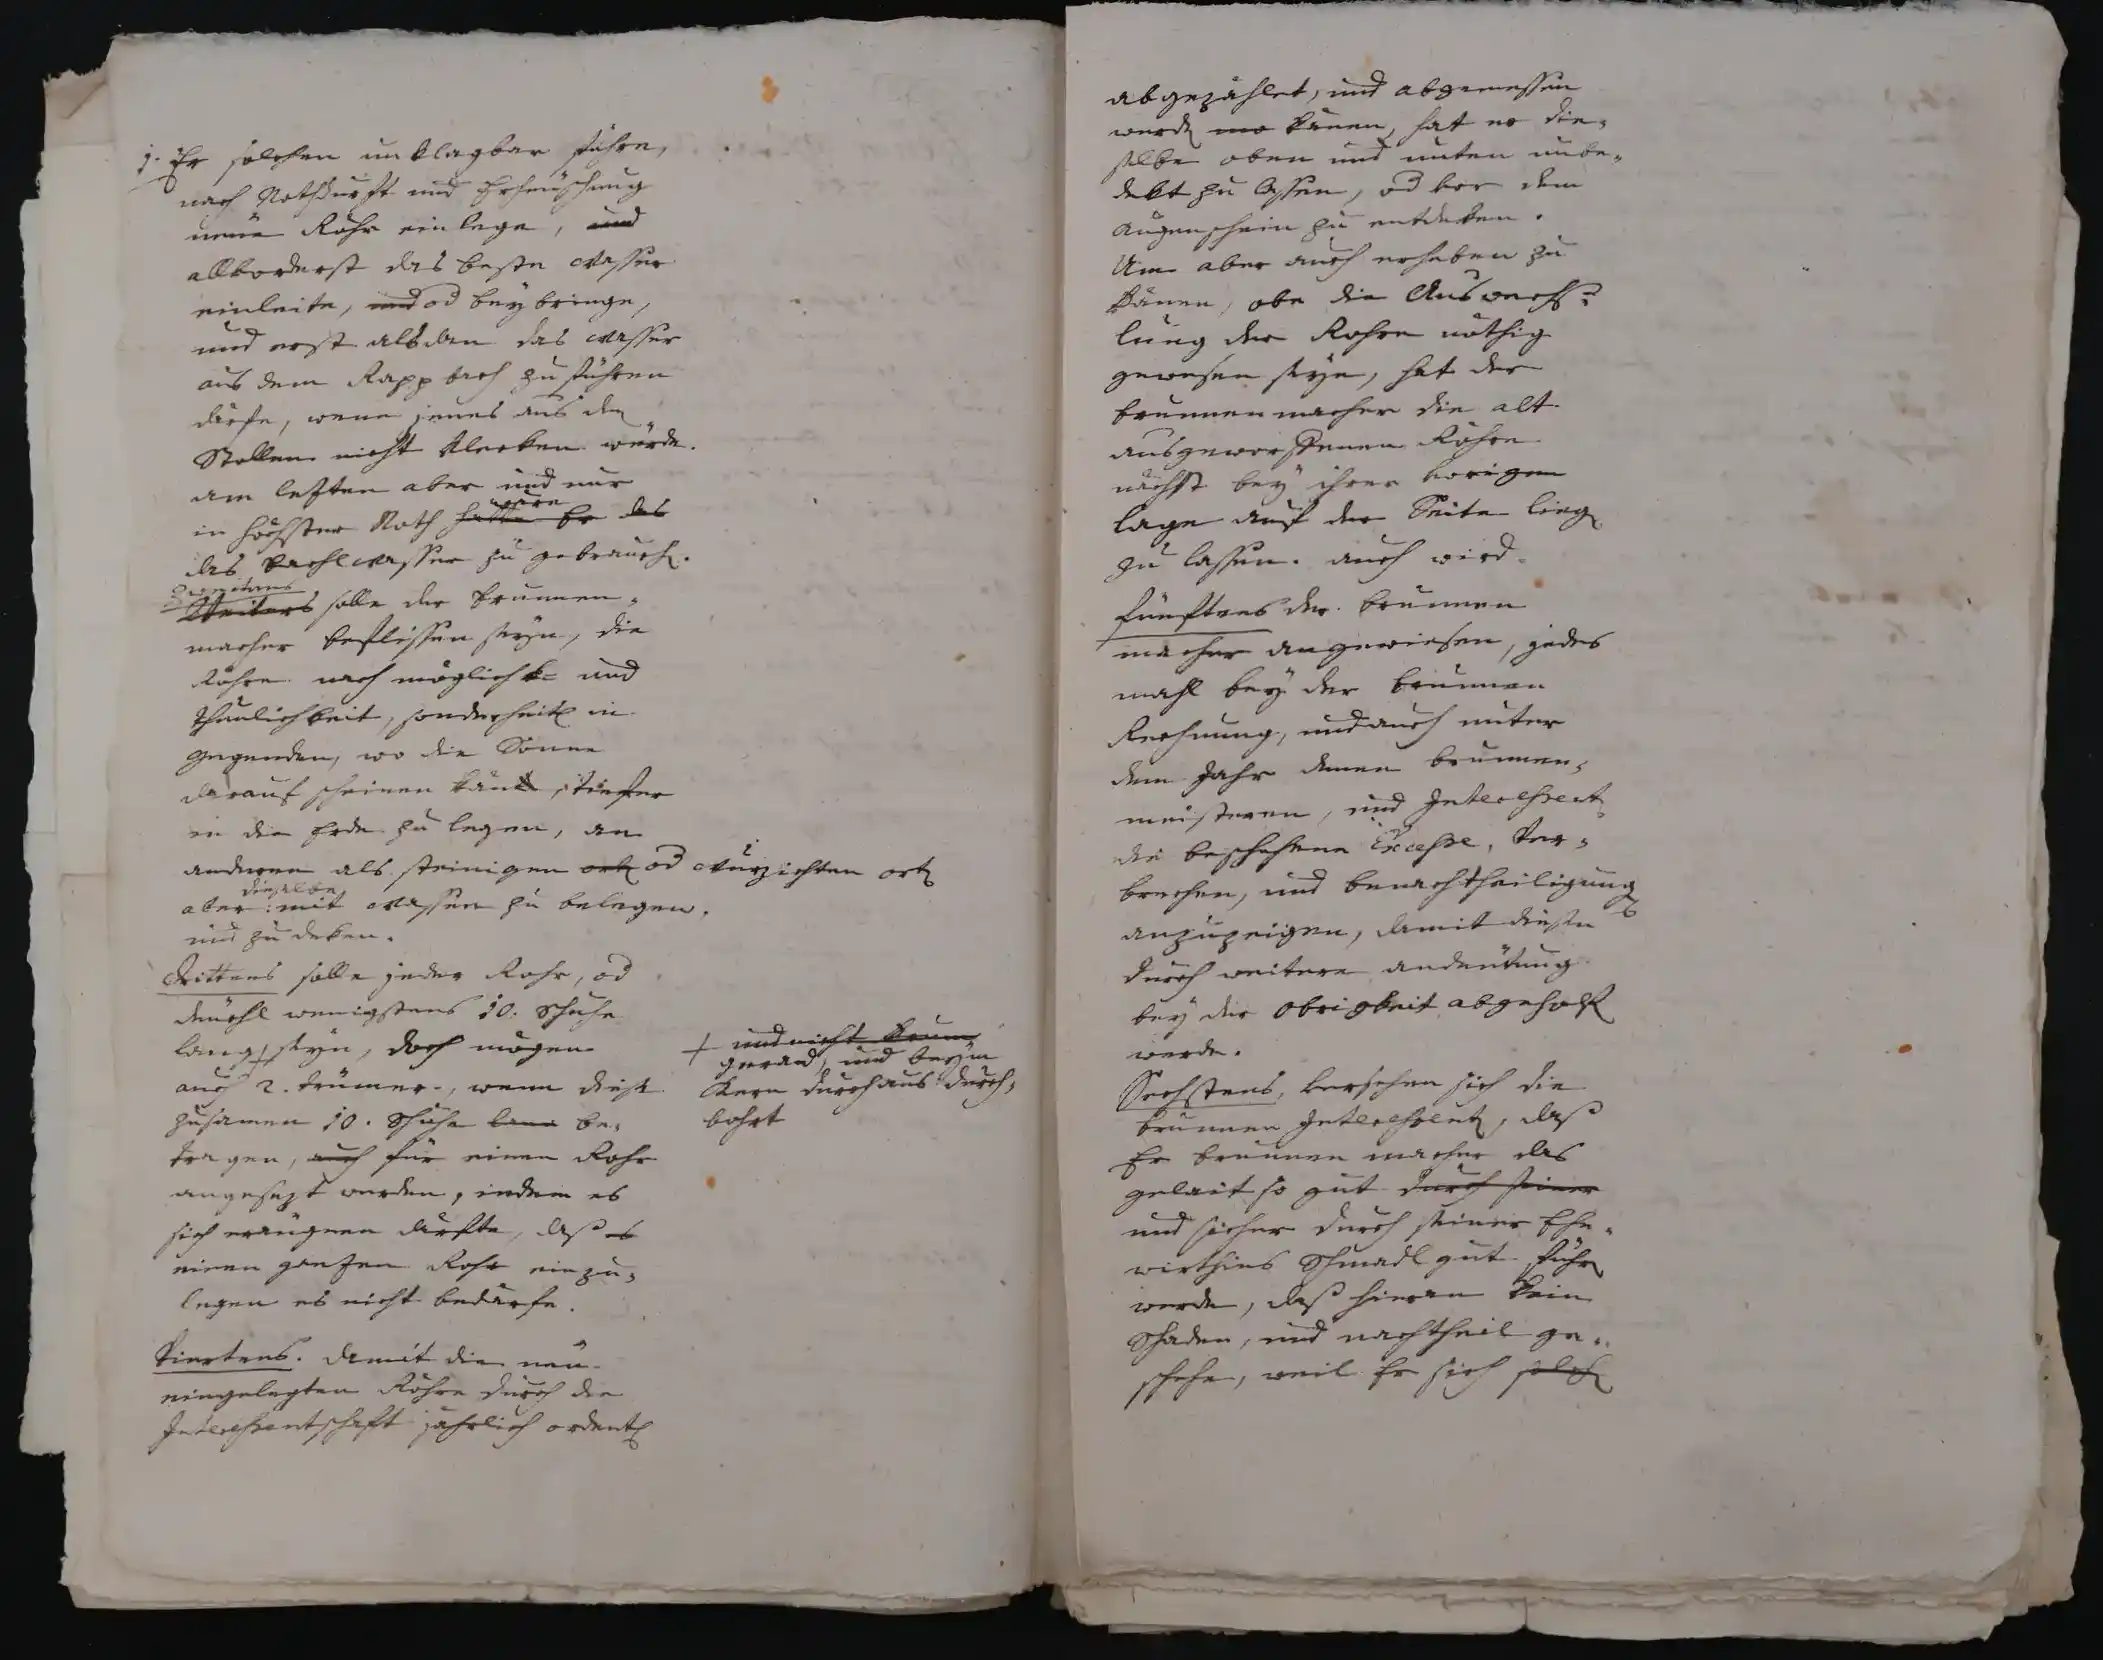 1. Er solchen unklagbar führe,
nach Nothdurft und Erheüschung
neüe Rohr einlege, und
allvorderst das beste Wasser
einleite, und od beybringe,
und erst alsdan das Wasser
aus dem Rappbach zu führen
därfe, wenn jenes aus den
Stollen nicht klecken würde.
am lezten aber und nur
wäre
in höchster Noth hätte Er das
das Bachlwasser zu gebrauchen.
Zweitens
Weiters solle der Brunnen„
macher beflissen seyn, die
Röhre nach möglichk= und
Thunlichkeit, sonderheitl in
Gegenden, wo die Sonne
darauf scheinen kän, tiefer
in die Erde zu legen, an
anderen als steinigen ort od Wurzichten ort
dieselbe
aber mit Wassen zu belegen,
und zu deken.
Drittens solle jeder Rohr, od
Deuchl wenigstens 10. Schuhe
lang + seyn, doch mögen
auch 2. Trümer, wenn diese
zusamen 10. Schuhe lang be„
tragen, auch für einen Rohr
angesezt werden, indem es
sich eraügnen därfte, daß es
einen ganzen Rohr einzu„
legen es nicht bedärfe.
+ und nicht krum
gerad, und beym
Kern durchaus durch„
bohrt
Viertens. damit die neu
eingelegten Röhre durch die
Interessentschaft jährlich ordentl
abgezählet, und abgemessen
werden känen, hat er die„
selbe oben und unten unbe„
dekt zu lassen, od vor dem
Augenschein zu entdeken.
Um aber auch erheben zu
känen, obe die Auswechs=
lung der Rohre nöthig
gewesen seye, hat der
Brunnenmacher die alt
ausgeworffenen Röhre
nächst bey ihrer vorigen
lage auf der Seite liegen
zu lassen. auch wird
fünftens der Brunnen
macher angewiesen, jedes
mahl bey der Brunnen
Rechnung, und auch unter
dem Jahr denen Brunnen„
meisteren, und Interessenten
die beschehene Excesse, Ver„
brechen, und benachtheiligungen
anzuzeigen, damit diesen
durch weitere andeütung
bey der Obrigkeit abgeholfen
werde.
Sechstens, versehen sich die
Brunnen Interessenten, daß
Er Brunnenmacher das
gelait so gut durch seiner
und sicher durch seiner Ehe„
wirthins Schmadl gut führen
werde, daß hieran kein
Schaden, und nachtheil ge„
schehe, weil Er sich solchen